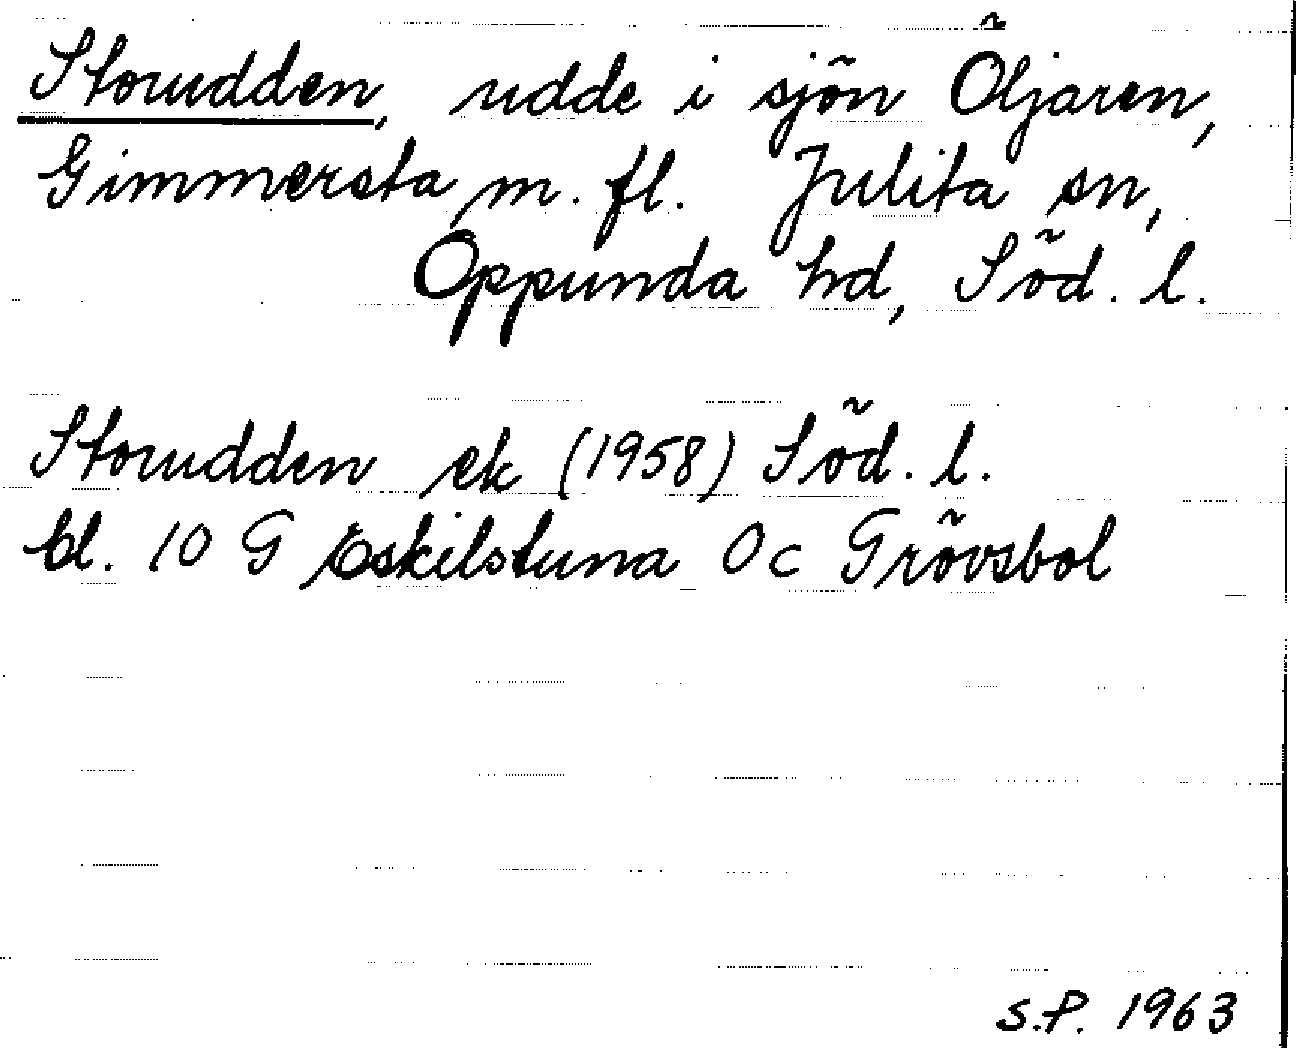 Storudden, udde i sjön Öljaren,
Gimmersta m. fl. Julita sn,
Oppunda hd, Söd. l.
Storudden ek (1958) Söd. l.
bl. 10 G Eskilstuna 0 c Grövsbol
S.P. 1963